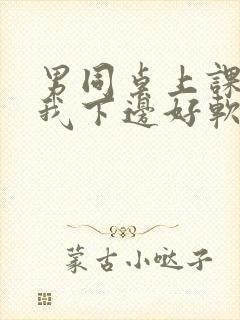 男同桌上課
我下邊好軟
蒙古小噠子